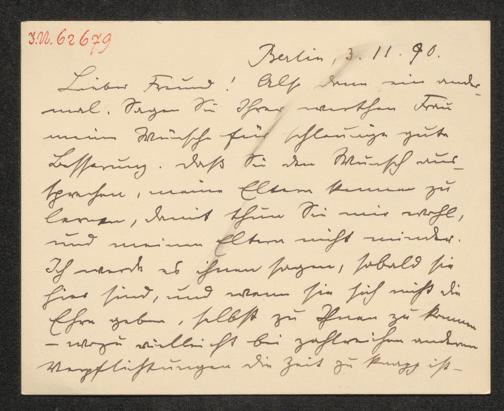 I.N. 62679
Berlin, 3. 11. 90.
Lieber Freund! Also dann ein ander-
mal. Sagen Sie Ihrer werthen Frau
meine Wünsche für schleunige gute
Besserung. Daß Sie den Wunsch aus-
sprechen, meine Eltern kennen zu
lernen, damit thun Sie mir wohl,
und meinen Eltern nicht minder.
Ich werde es ihnen sagen, sobald sie
hier sind, und wenn sie sich nicht die
Ehre geben, selbst zu Ihnen zu kommen
– wozu vielleicht bei zahlreichen anderen
Verpflichtungen die Zeit zu knapp ist –